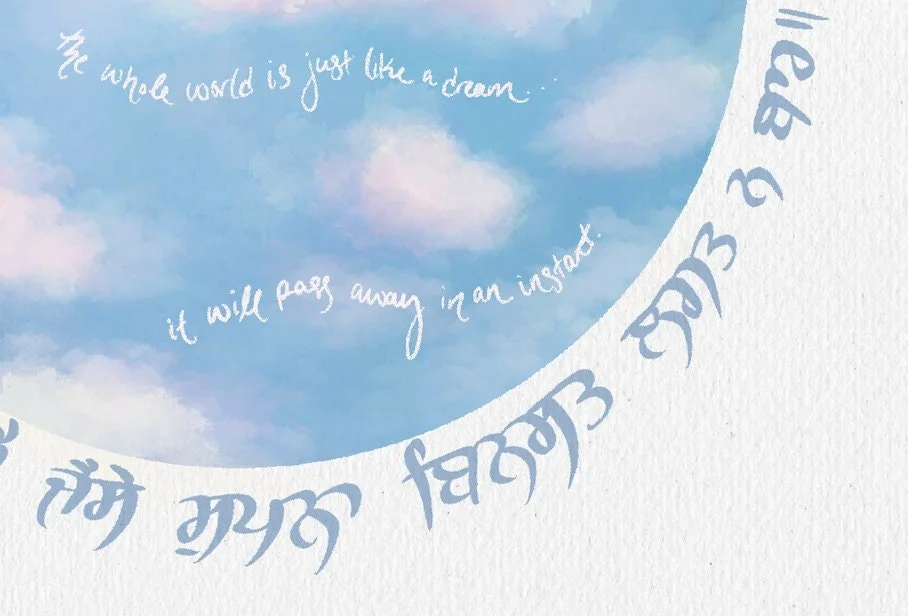 the whole world is just like a dream...
it will pass away in an instant.
ਜੈਸੇ ਸੁਪਨਾ ਬਿਨਸਤ ਲਗਤ ਨ ਬਾਰ ॥